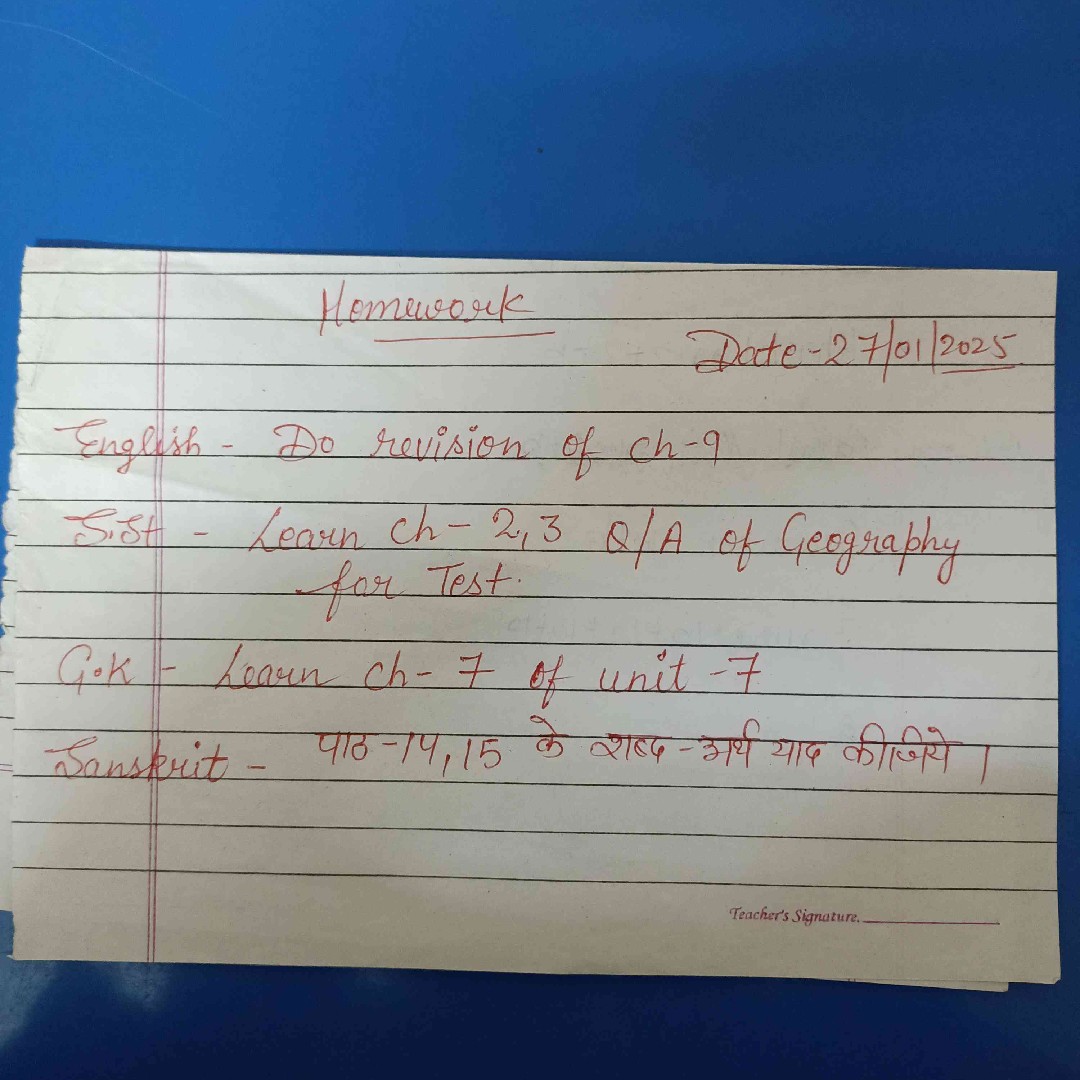 Homework
Date-27/01/2025
English - Do revision of ch-9
S.St - Learn ch- 2,3 Q/A of Geography
for Test.
G.K - Learn ch- 7 of unit -7
Sanskrit - पाठ-14,15 के शब्द-अर्थ याद कीजिये।
Teacher's Signature.